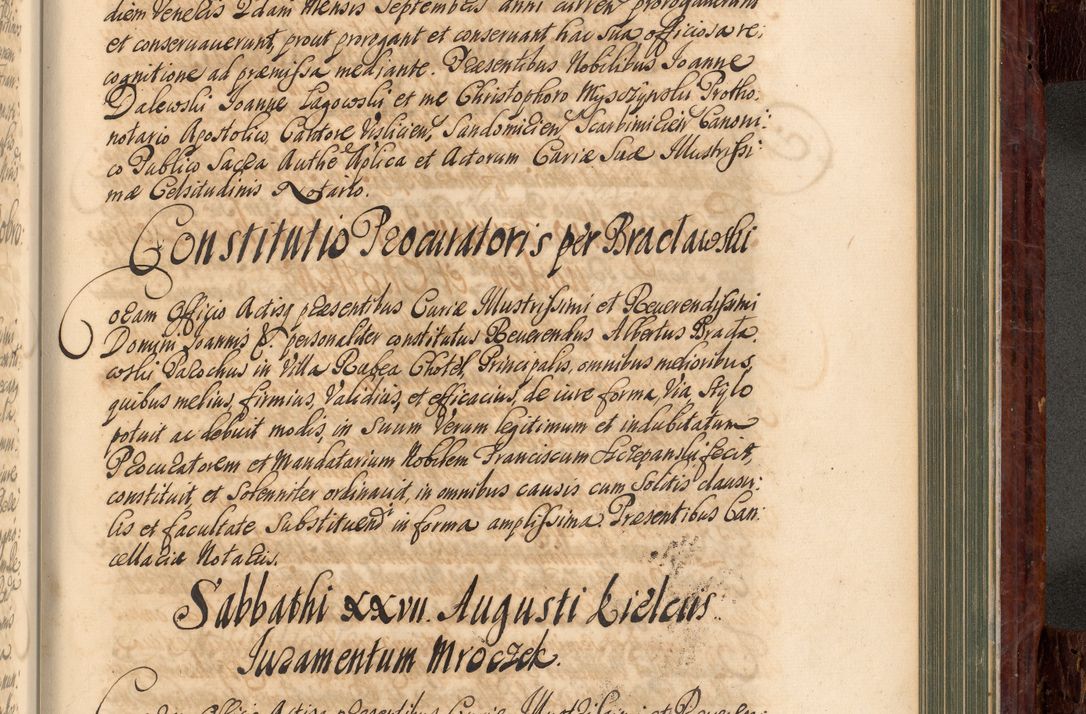 diem Veneris 2dam Mensis Septembris anni curren prorogauerunt
et conseruauerunt, prout prorogant et conseruant hac sua officiosa re:
cognitione ad præmissa mediante. Præsentibus Nobilibus Joanne
Dalewski Joanne Lagowski et me Christophoro Myszczynski Protho:
notario Apostolico, Cantore Vislicien, Sandomirien Scarbimirien Canoni:
co Publico Sacra Authe Aplica et Actorum Curiæ Suæ Illustrissi:
mæ Celsitudinis Notario.
Constitutio Procuratoris per Bracławski
Coram Officio Actisq præsentibus Curiæ Illustrissimi et Reuerendissimi
Domini Joannis &. personaliter constitutus Reuerendus Albertus Bracła
wski Parochus in Villa Chotel, Principalis, omnibus melioribus,
quibus melius, firmius, Validius, et efficacius, de iure forma, Via Stylo
potuit ac debuit modis, in Suum Verum legitimum et indubitatum
Procuratorem et Mandatarium Nobilem Franciscum Szczepanski fecit,
constituit, et Solenniter ordinauit, in omnibus causis cum Solitis clausu:
lis et facultate Substituend in forma amplissima. Præsentibus Can:
cellariæ Notariis.
Sabbathi XXVII. Augusti Kielciis.
Juramentum Mroczek.
Coram Officio Actisq præsentibus Curiæ Illustrissimi et Reueren